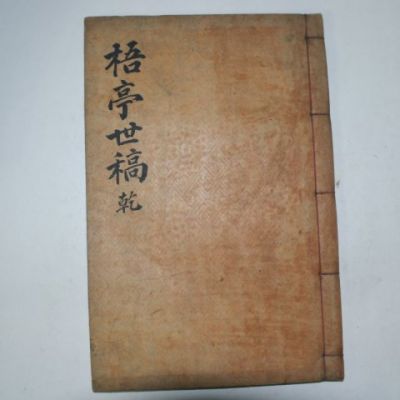 梧亭世稿 乾